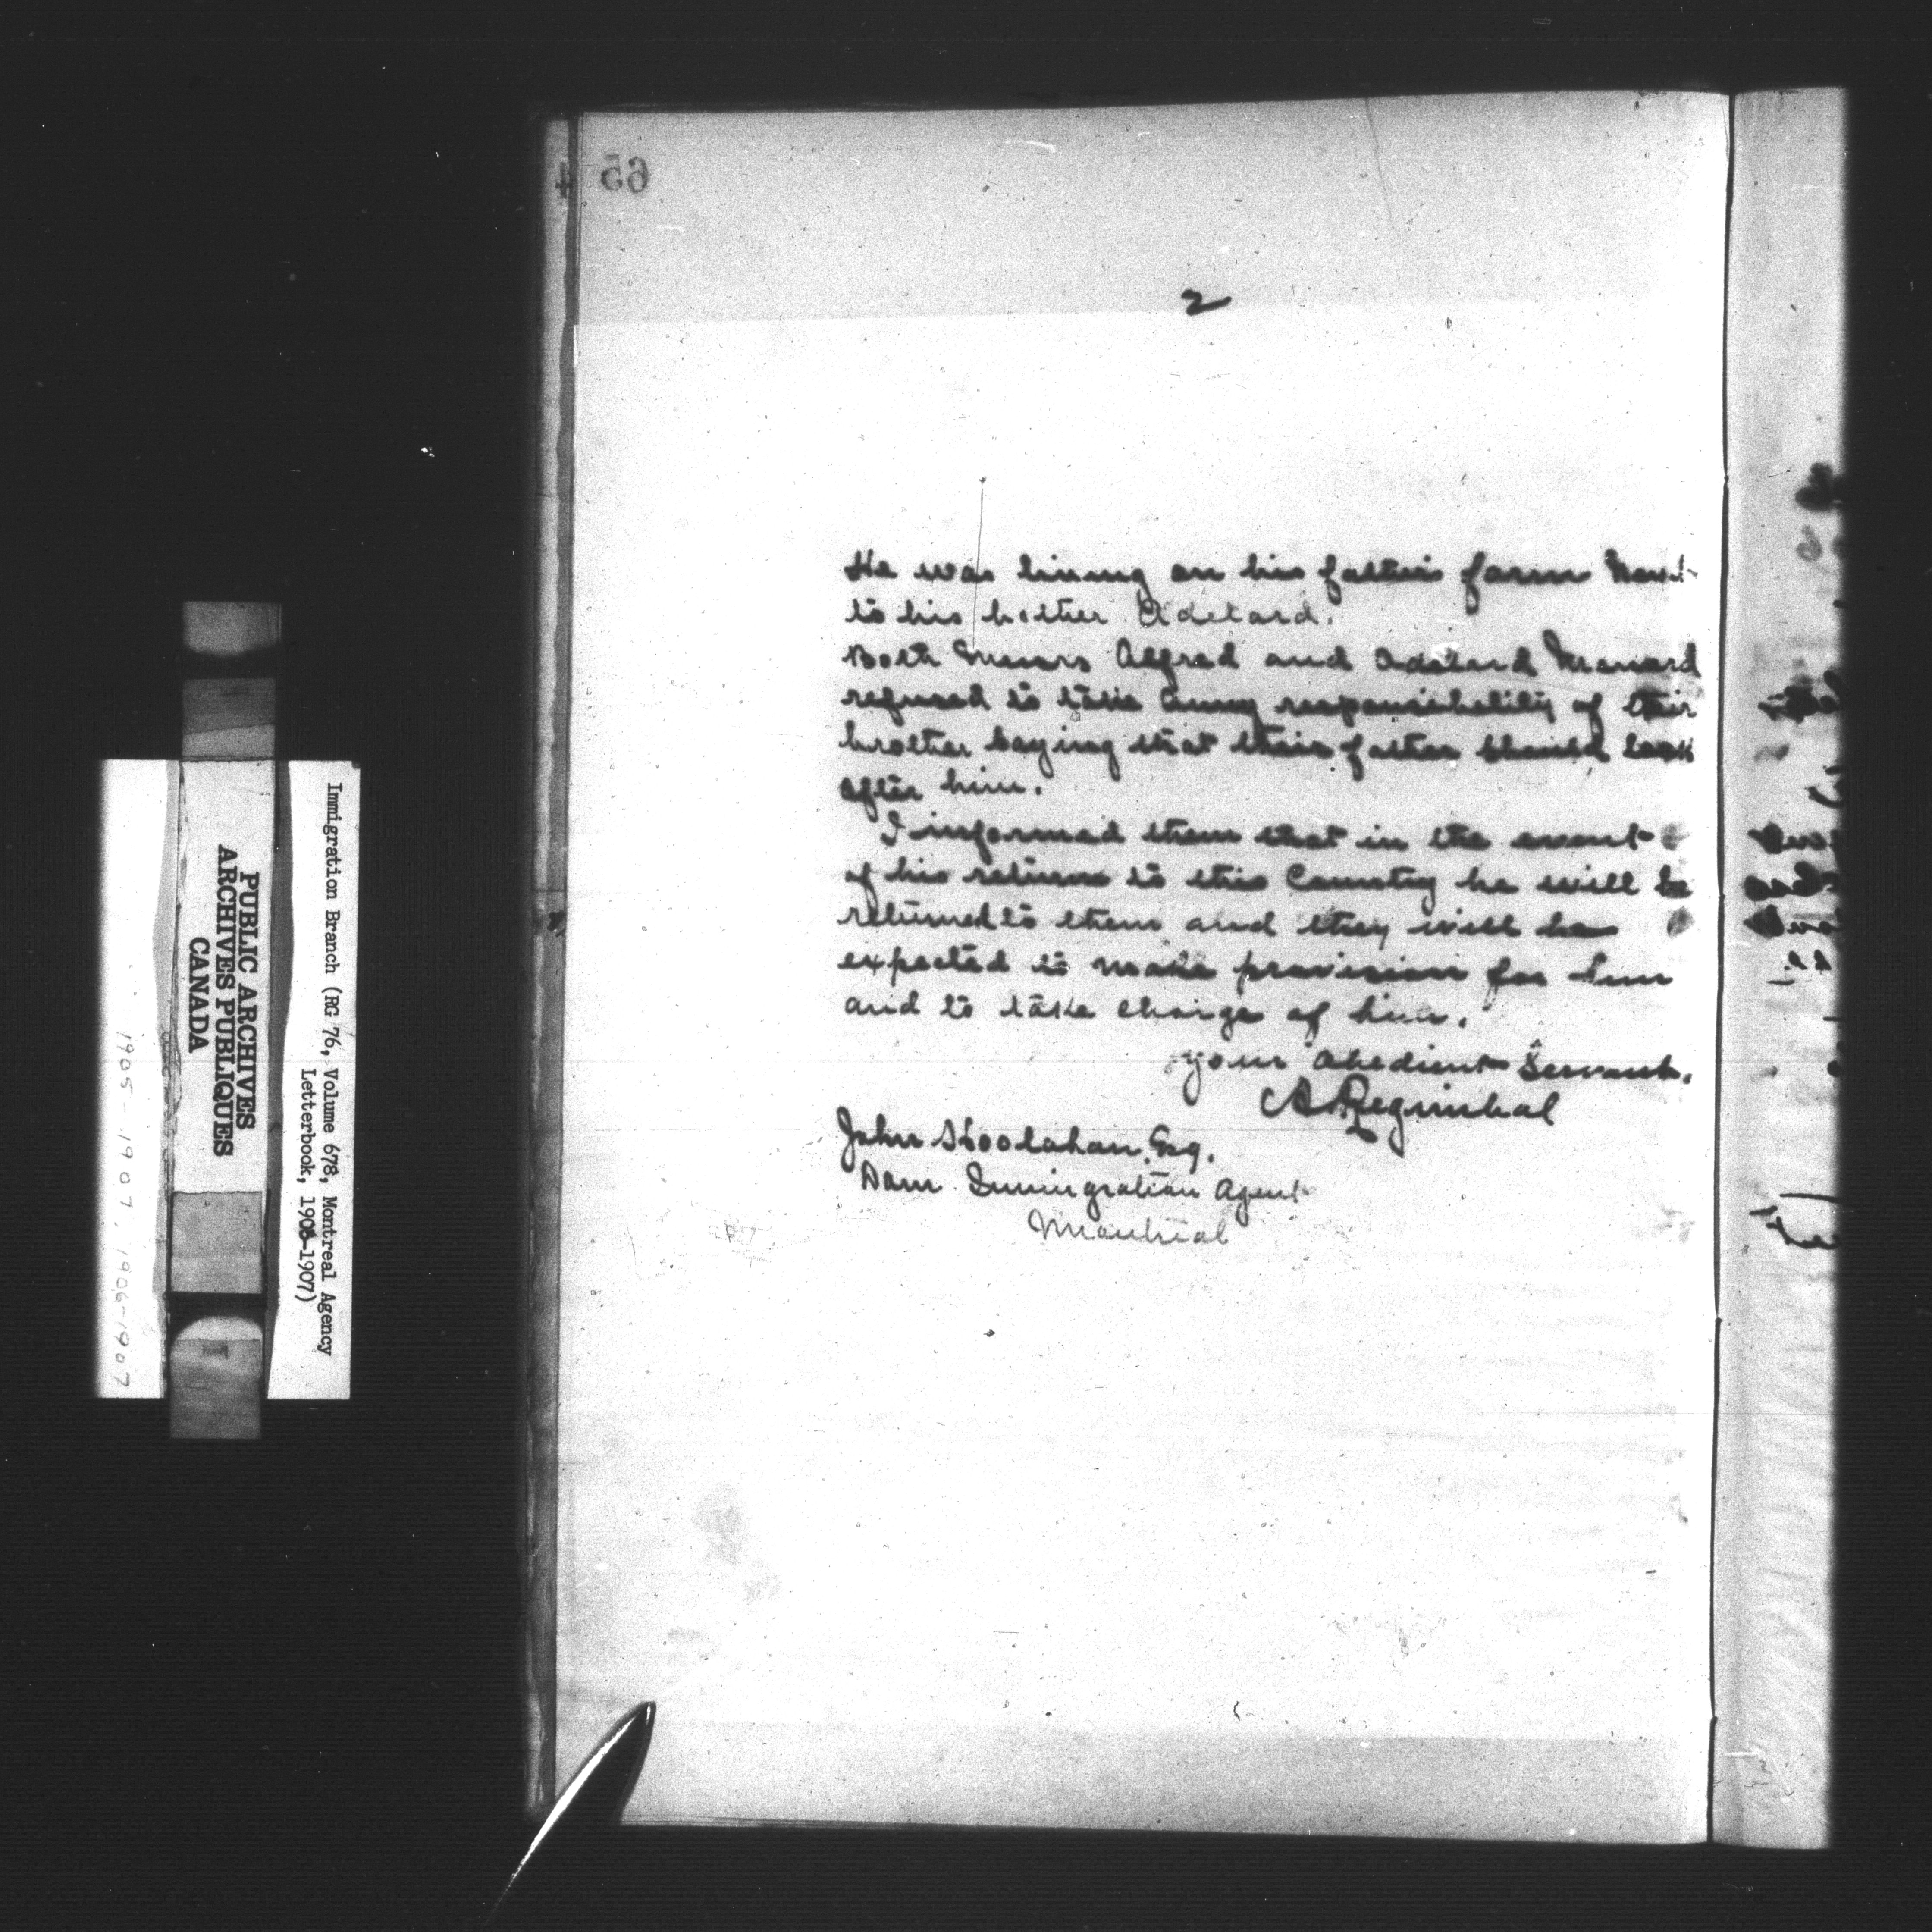 65
2
He was living on his father's farm next
to his brother Adelard.
Both Messrs Alfred and Adelard Menard
refused to take any responsibility of their
brother saying that their father should look
after him.
I informed them that in the event
of his return to this Country he will be
returned to them and they will be
expected to make provision for him
and to take charge of him.
your obedient Servant.
John Hoolahan Esq.
Dom. Immigration Agent
Montreal
Immigration Branch (RG 76, Volume 678, Montreal Agency
Letterbook, 1906-1907)
PUBLIC ARCHIVES
ARCHIVES PUBLIQUES
CANADA
1905-1907, 1906-1907